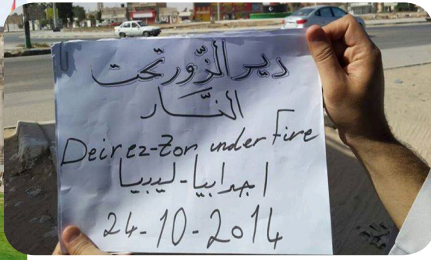 دير الزّور تحت
النّار
Deir ez-Zor under Fire
اجدابيا - ليبيا
24-10-2014